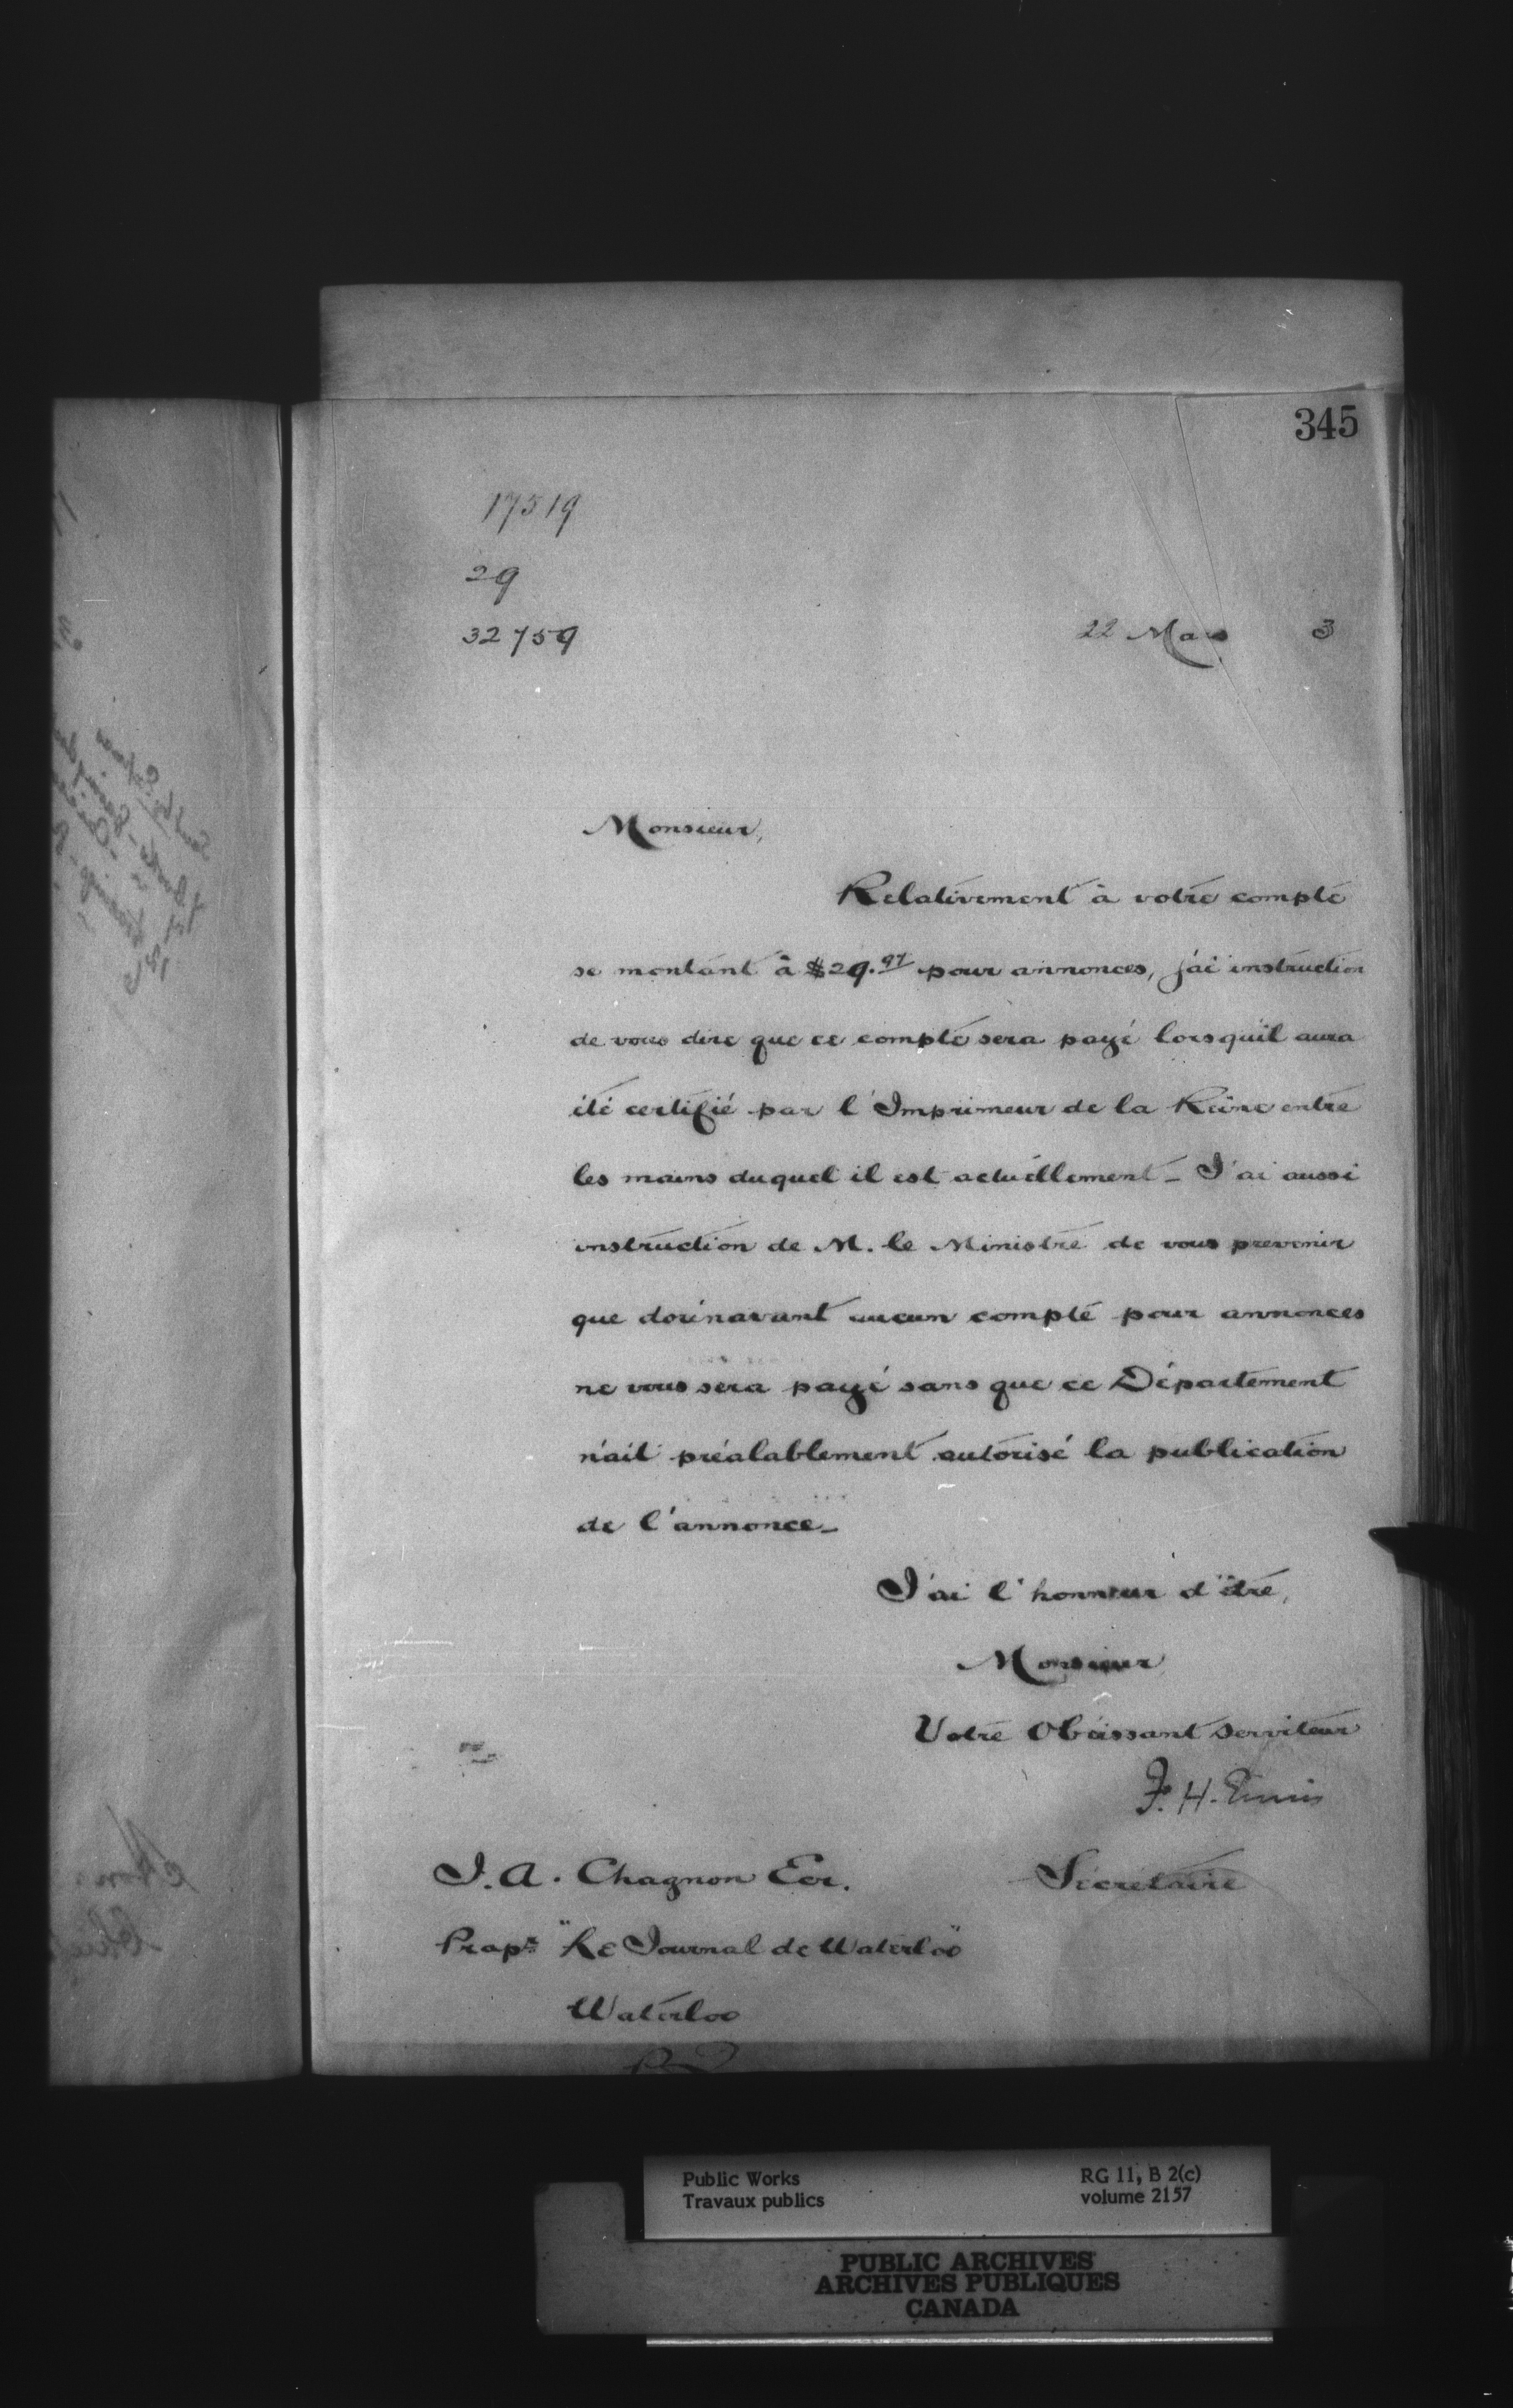 345
17519
29
32759
22 Mars 3
Monsieur,
Relativement à votre compte
se montant à $29.97 pour annonces, j'ai instruction
de vous dire que ce compte sera payé lorsqu'il aura
été certifié par l'Imprimeur de la Reine entre
les mains duquel il est actuellement _ J'ai aussi
instruction de M. le Ministre de vous prevenir
que dorénavant aucun compte pour annonces
ne vous sera payé sans que ce Département
n'ait préalablement autorisé la publication
de l'annonce _
J'ai l'honneur d'être,
Monsieur
Votre Obéissant Serviteur
F. H. Ennis
Secrétaire
J. A. Chagnon Ecr.
Propre "Le Journal de Waterloo"
Waterloo
Public Works
Travaux publics
RG 11, B 2(c)
volume 2157
PUBLIC ARCHIVES
ARCHIVES PUBLIQUES
CANADA